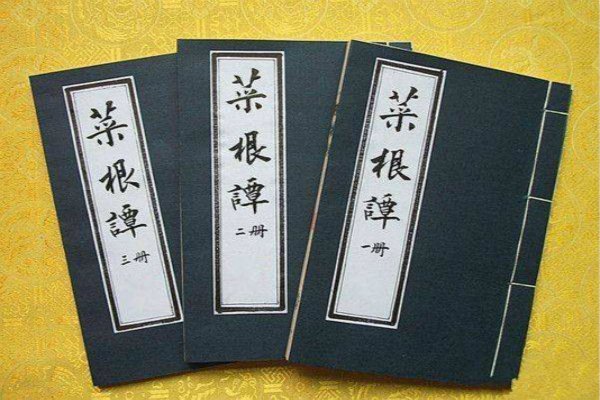 菜根譚
三册
菜根譚
二册
菜根譚
一册